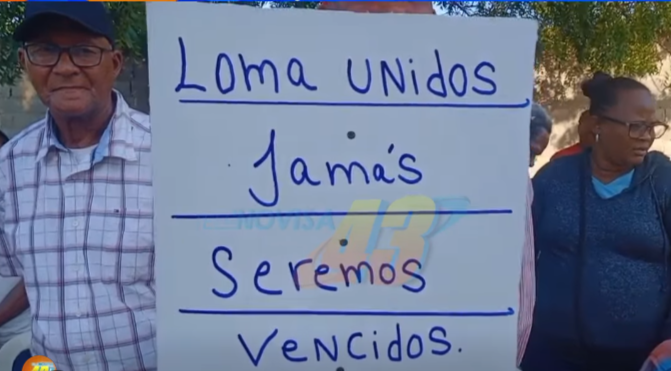 Loma UNidos
Jamás
NOVISA
43
Seremos
VeNCidos.